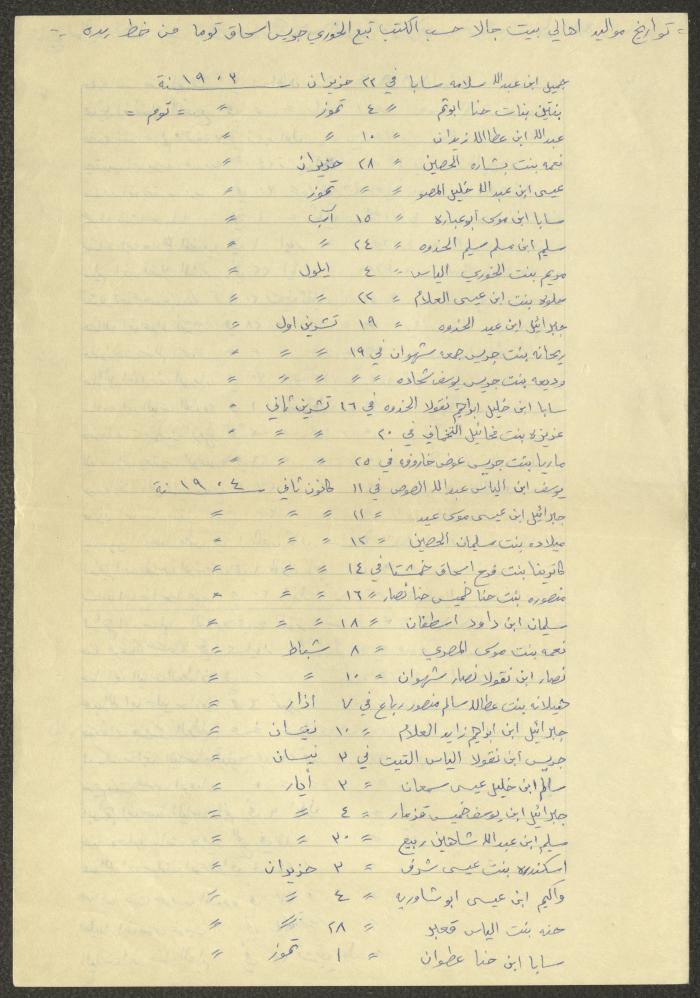 = تواريخ مواليد اهالي بيت جالا حسب الكتب تبع الخوري جريس اسحاق توما من خط يده =
جميل ابن عبدالله سلامه سابا في ٢٢ حزيران سنة ١٩٠٣
بنات حنا ابوتم " ٤ تموز " = توم =
عبدالله ابن عطاالله زيدان " ١٠ " "
نعمه بنت بشاره الحصين " ٢٨ حزيران "
عيسى ابن عبدالله خليل المصو " " تموز "
سابا ابن موسى ابوعباره " ١٥ آب "
سليم ابن مسلم سليم الحذوه " ٢٤ " "
مريم بنت الخوري الياس " ٤ ايلول "
حلوه بنت ابن عيسى العلام " ٢٢ " "
جبرائيل ابن عيد الحذوه " ١٩ تشرين اول "
ريحانه بنت جريس جمعه شهوان في ١٩ " " "
وديعه بنت جريس يوسف شحاده " " " " "
سابا ابن خليل ابراهيم نقولا الحذوه في ١٦ تشرين ثاني "
عزيزه بنت مخائيل في ٢٠ " " "
ماريا بنت جريس عوض خاروفه في ٢٥ " " "
يوسف ابن الياس عبدالله الصوص في ١١ كانون ثاني سنة ١٩٠٤
جبرائيل ابن عيسى موسى عيد " ١١ " " "
ميلاده بنت سليمان الحصين " ١٢ " " "
كاترينا بنت فرح اسحاق خمشتا في ١٤ " " "
منصوره بنت حنا خميس حنا نصار " ١٦ " " "
سليمان ابن داود اسطفان " ١٨ " " "
نعمه بنت موسى المصري " ٨ شباط "
نصار ابن نقولا نصار شهوان " ١٠ " "
هيلانه بنت عطالله سالم منصور رباع في ٧ اذار "
جبرائيل ابن ابراهيم زايد العلام " ١٠ نيسان "
جريس ابن نقولا الياس التيت في ٣ نيسان "
سالم ابن خليل عيسى سمعان " ٣ أيار "
جبرائيل ابن يوسف خميس قزمار " ٤ " "
سليم ابن عبدالله شاهين ربيع " ٣٠ " "
اسكندره بنت عيسى شرف " ٣ حزيران "
واكيم ابن عيسى ابو شاوريه " ٤ " "
حنه بنت الياس قعبر " ٢٨ " "
سابا ابن حنا عطوان " ١ تموز "